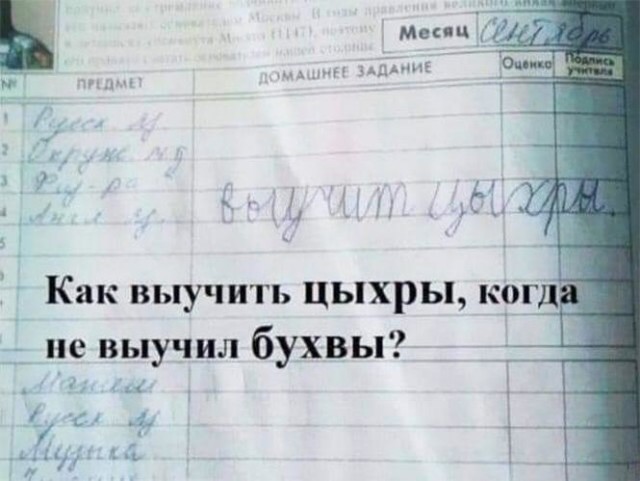 Месяц Сентябрь
№ ПРЕДМЕТ ДОМАШНЕЕ ЗАДАНИЕ Оценка Подпись учителя
1 Русск. яз
2 Окруж. м
3 Физ-ра
выучит цыхры.
4 Англ яз.
5
Как выучить цыхры, когда
не выучил бухвы?
Матем
Русск яз
Музыка